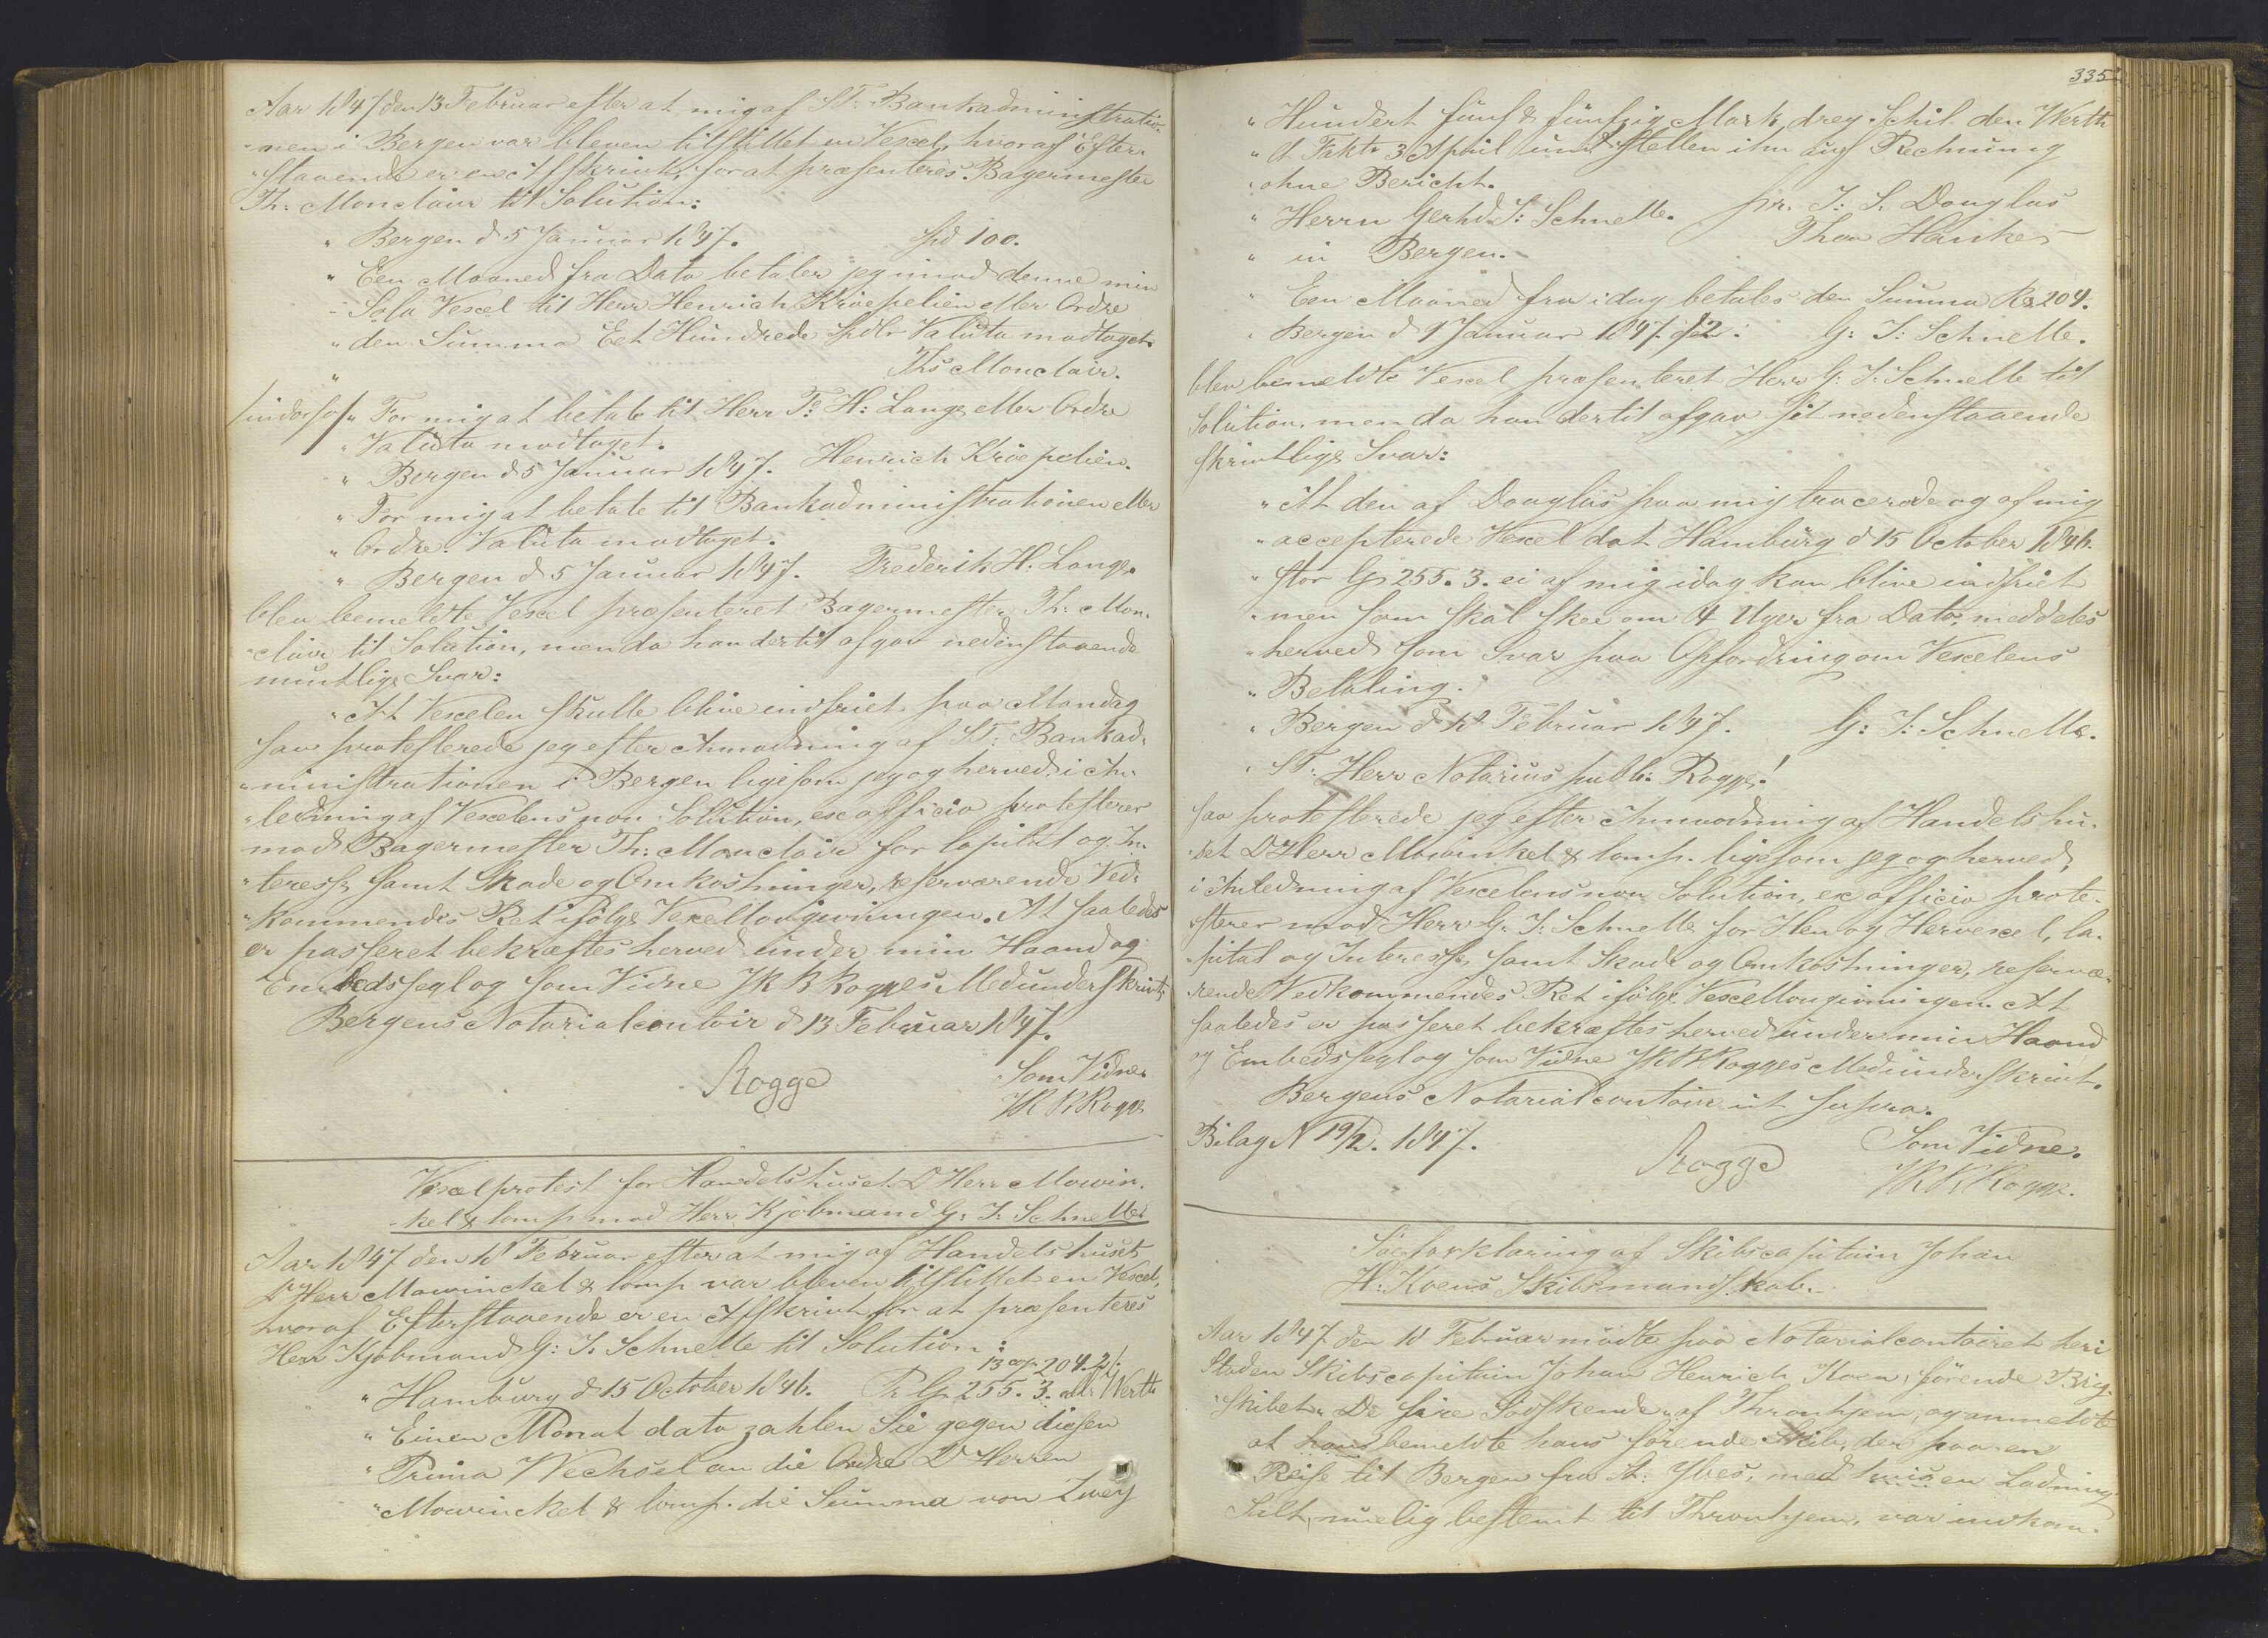 Aar 1847 den 13 Februar efter at mig af S.T. Bankadministratio-
nen i Bergen var bleven tilstillet en Vexel, hvoraf Efter-
staaende er en Afskrivt, for at præsenteres Bagermester
Th: Monclair til Solution:
" Bergen d 5 Januar 1847. Spd 100.
" Een Maaned fra Dato betaler jeg imod denne min
" Sola Vexel til Herr Henrich Kroepelien eller Ordre
" den Summa Eet Hundrede Spdlr Valuta modtaget.
" Ths Monclair.
/indorso/ " For mig at betale til Herr Fr: H: Lange eller Ordre
" Valuta modtaget.
" Bergen d 5 Januar 1847. Henrich Kroepelien.
" For mig at betale til Bankadministrationen eller
" Ordre. Valuta modtaget.
" Bergen d 5 Januar 1847. Frederik H. Lange.
blev bemeldte Vexel præsenteret Bagermester Th: Mon-
clair til Solution, men da han dertil afgav nedenstaaende
mundtlige Svar:
" At Vexelen skulle blive indfriet paa Mandag
saa protesterede jeg efter Anmodning af S.T. Bankad-
ministrationen i Bergen ligesom jeg og herved i An-
ledning af Vexelens non Solution, ex officio protesterer
mod Bagermester Th: Monclair for Capital og In-
teresse samt Skade og Omkostninger, reserverende Ved-
kommendes Ret ifølge Vexellovgivningen. At saaledes
er passeret bekræftes herved under min Haand og
Embedssegl og som Vidne JKR Rogges Medunderskrivt,
Bergens Notarialcontoir d 13 Februar 1847.
Rogge Som Vidne
JKR Rogge
Vexelprotest for Handelshuset D Herr Mowin-
kel & Comp mod Herr Kjøbmand G: J: Schnelle
Aar 1847 den 18 Februar efter at mig af Handelshuset
D Herr Mowinckel & Comp var bleven tilstillet en Vexel,
hvoraf Efterstaaende er en Afskrivt for at præsenteres
Herr Kjøbmand G: J. Schnelle til Solution:
204.2
" Hamburg d 15 October 1846. 255.3. Werth
" Einen Monat dato zahlen Sie gegen diesen
" Prima Wechsel an die Ordre D Herren
" Mowinckel & Comp. die Summa von Zwey
335
" Hundert fünf & fünfzig Mark, drey Schil den Werth
" 3 April und stellen ihn auf Rechnung
" ohne Bericht.
" Herrn Gerhd J: Schnelle. pr. J: S. Douglas
" in Bergen. Thor Hankes
" Een Maaned fra idag betales den Summa 204.
" Bergen d 9 Januar 1847. G: J: Schnelle.
blev bemeldte Vexel præsenteret Herr G: J: Schnelle til
Solution, men da han dertil afgav sit nedenstaaende
skrivtlige Svar:
" At den af Douglas paa mig tracerede og af mig
" accepterede Vexel dat Hamburg d 15 October 1846.
" stor 255.3. ei af mig idag kan blive indfriet
" men som skal skee om 4 Uger fra Dato, meddeles
" herved som Svar paa Opfordring om Vexelens
" Betaling.
" Bergen d 18 Februar 1847. G: J: Schnelle.
" S.T. Herr Notarius publ: Rogge!
saa protesterede jeg efter Anmodning af Handelshu-
set D Herr Mowinkel & Comp. ligesom jeg og herved,
i Anledning af Vexelens non Solution, ex officio prote-
sterer mod Herr G: J: Schnelle for Hen og Hervexel, Ca-
pital og Interesse, samt Skade og Omkostninger, reserve-
rende Vedkommendes Ret ifølge Vexellovgivningen. At
saaledes er passeret bekræftes herved under min Haand
og Embedssegl og som Vidne JKR Rogges Medunderskrivt.
Bergens Notarialcontoir ut supra.
Bilag N 19/2. 1847. Rogge Som Vidne.
JKR Rogge.
Søeforklaring af Skibscapitain Johan
H: Koens Skibsmandskab.
Aar 1847 den 18 Februar mødte paa Notarialcontoiret heri
Staden Skibscapitain Johan Henrich Koen, førende Brig-
skibet " De fire Sødskende " af Thronhjem, og anmeldte
at hans bemeldte hans førende Skib, der paa en
Reise til Bergen fra St: Ybes, med en Ladning
Salt, bestemt til Thronhjem, var indkom-